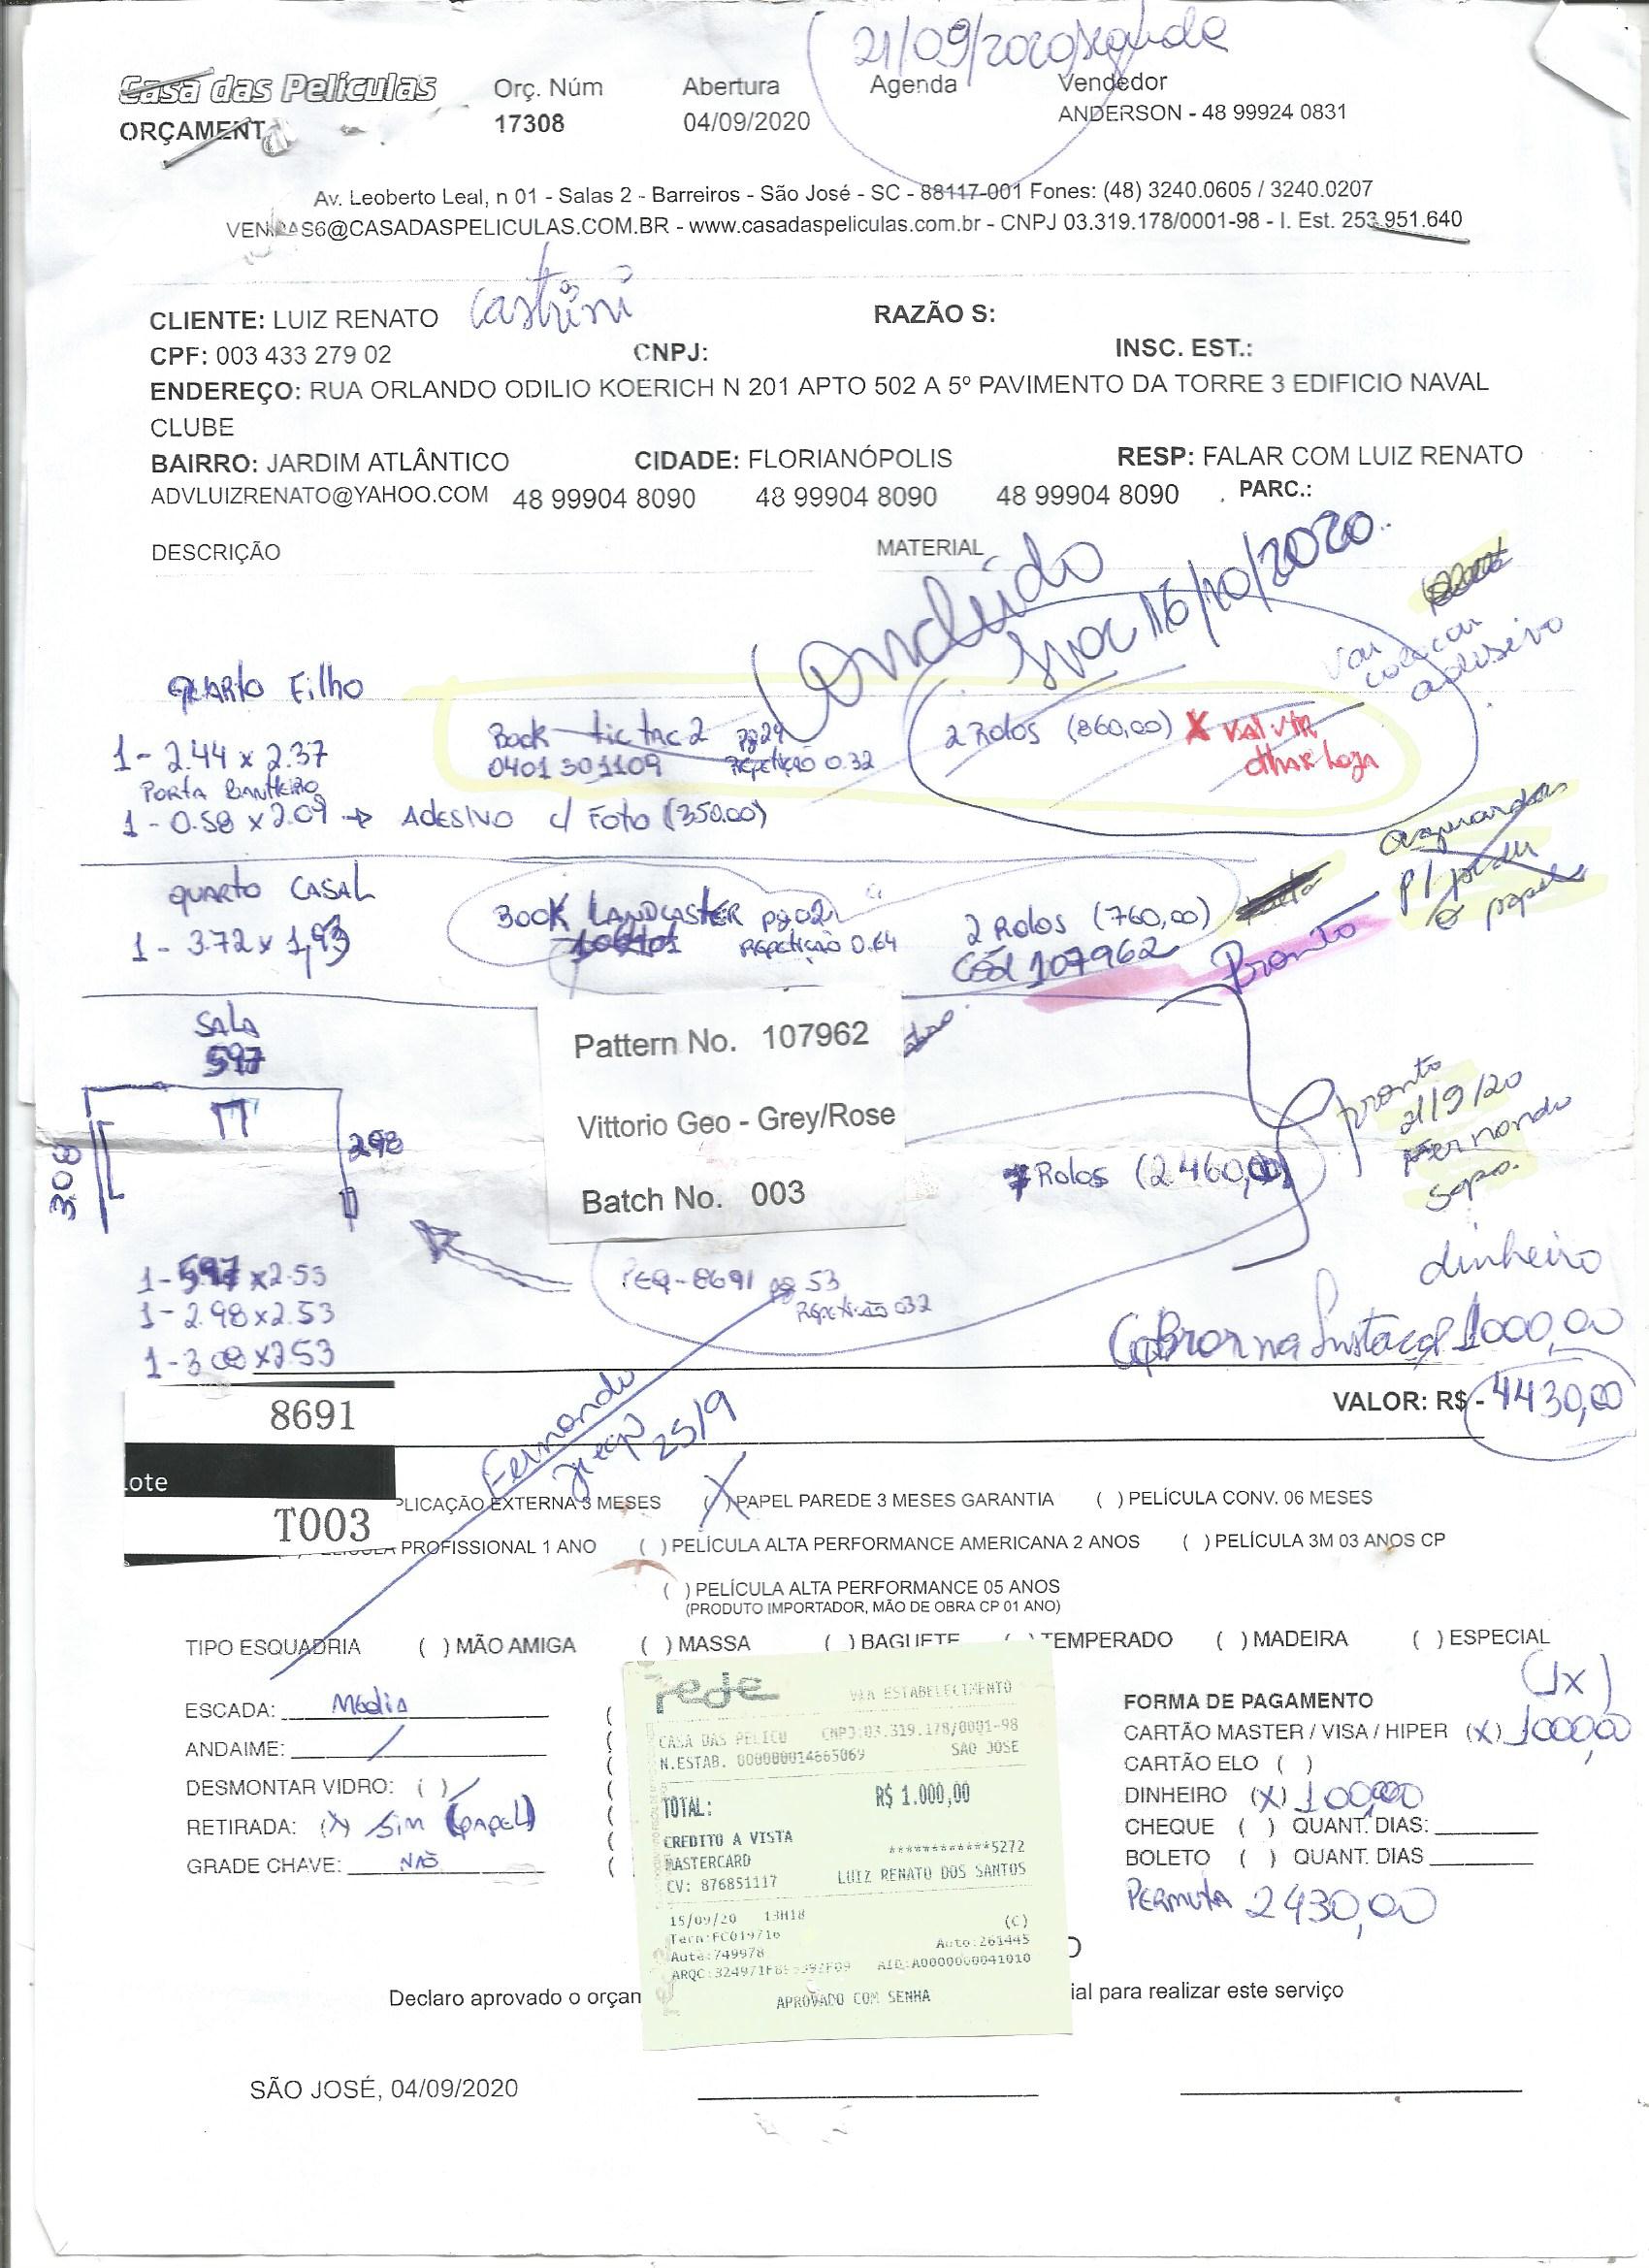 21/09/2020 segunda
Casa das Películas Orç. Núm Abertura Agenda Vendedor
ORÇAMENT 17308 04/09/2020 ANDERSON - 48 99924 0831
Av. Leoberto Leal, n 01 - Salas 2 - Barreiros - São José - SC - 88117-001 Fones: (48) 3240.0605 / 3240.0207
VENDAS6@CASADASPELICULAS.COM.BR - www.casadaspeliculas.com.br - CNPJ 03.319.178/0001-98 - I. Est. 253.951.640
CLIENTE: LUIZ RENATO RAZÃO S:
CPF: 003 433 279 02 CNPJ: INSC. EST.:
ENDEREÇO: RUA ORLANDO ODILIO KOERICH N 201 APTO 502 A 5º PAVIMENTO DA TORRE 3 EDIFICIO NAVAL
CLUBE
BAIRRO: JARDIM ATLÂNTICO CIDADE: FLORIANÓPOLIS RESP: FALAR COM LUIZ RENATO
ADVLUIZRENATO@YAHOO.COM 48 99904 8090 48 99904 8090 48 99904 8090 PARC.:
DESCRIÇÃO MATERIAL
Concluído
16/10/2020
Vai
colocar
adesivo
QUARTO Filho
1 - 2.44 x 2.37 Book tic tac 2 pg 24 2 Rolos (860,00) X VAI VIR
0401 301109 Repetição 0.32
PORTA BANHEIRO
1 - 0.58 x 2.09 → ADESIVO c/ Foto (350.00)
aguardar
p/ pedir
o papel
QUARTO CASAL BOOK LANDCASTER pg 02 2 Rolos (760,00)
1 - 3.72 x 1,93 Repetição 0.64 Cód 107962 Pronto
SALA
597
Pattern No. 107962
Vittorio Geo - Grey/Rose
Batch No. 003
298
308
7 Rolos (2460,00)
pronto
21/9/20
Fernando
1 - 597 x 2.53 PEQ - 8691 pg 53
Repetição 032
1 - 2.98 x 2.53
1 - 3 08 x 2.53
dinheiro
Cobrar na Instação 1000,00
VALOR: R$ - 4430,00
8691
ote
T003
Fernando
25/9
PLICAÇÃO EXTERNA 3 MESES (X) PAPEL PAREDE 3 MESES GARANTIA ( ) PELÍCULA CONV. 06 MESES
PROFISSIONAL 1 ANO ( ) PELÍCULA ALTA PERFORMANCE AMERICANA 2 ANOS ( ) PELÍCULA 3M 03 ANOS CP
( ) PELÍCULA ALTA PERFORMANCE 05 ANOS
(PRODUTO IMPORTADOR, MÃO DE OBRA CP 01 ANO)
TIPO ESQUADRIA ( ) MÃO AMIGA ( ) MASSA ( ) BAGUETE ( ) TEMPERADO ( ) MADEIRA ( ) ESPECIAL
ESCADA: Média
ANDAIME: /
DESMONTAR VIDRO: ( ) /
RETIRADA: (X) Sim (papel)
GRADE CHAVE: NÃO
rede VIA ESTABELECIMENTO
CASA DAS PELICU CNPJ:03.319.178/0001-98
N.ESTAB. 000000014665069 SAO JOSE
TOTAL: R$ 1.000,00
CREDITO A VISTA
MASTERCARD ************5272
CV: 876851117 LUIZ RENATO DOS SANTOS
15/09/20 13H18 (C)
Term:FC019716 Auto:261445
Aute:749978
AID:A0000000041010
APROVADO COM SENHA
(1x)
FORMA DE PAGAMENTO
CARTÃO MASTER / VISA / HIPER (X) 1000,00
CARTÃO ELO ( )
DINHEIRO (X) 1000,00
CHEQUE ( ) QUANT. DIAS:
BOLETO ( ) QUANT. DIAS
PERMUTA 2430,00
O
Declaro aprovado o orçam ial para realizar este serviço
SÃO JOSÉ, 04/09/2020